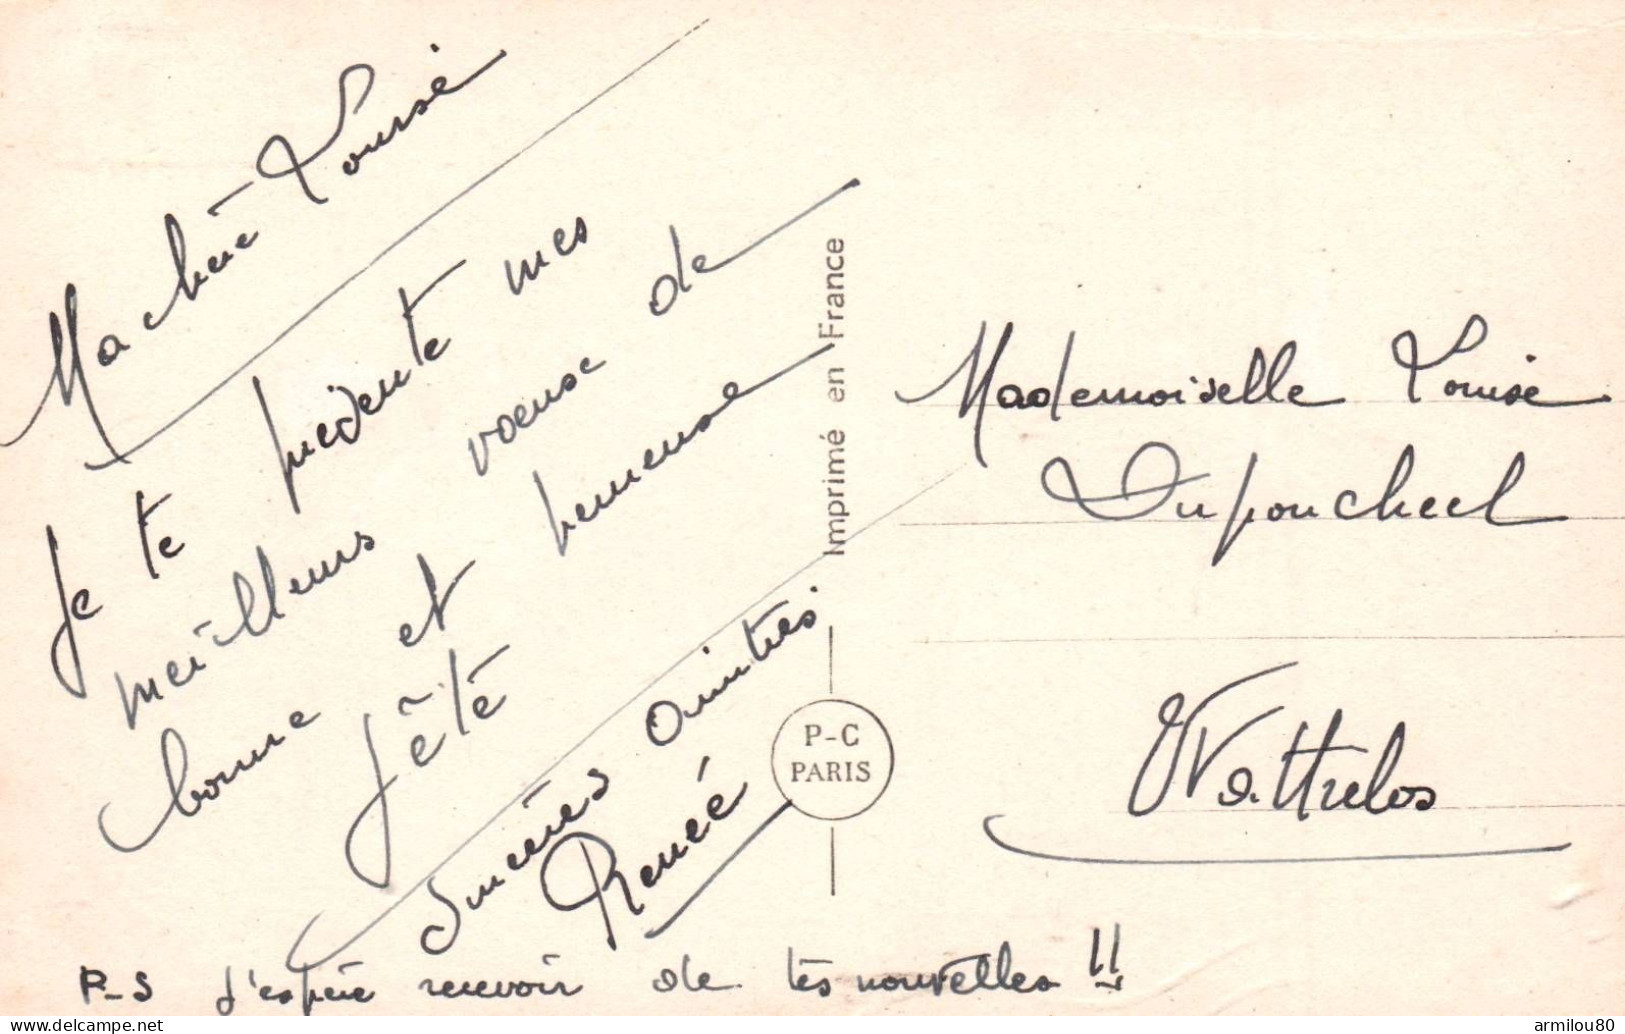 Ma chère Louise
Je te présente mes
meilleurs voeux de
bonne et heureuse
fête
Sincères amitiés
Renée
P-S J'espère recevoir de tes nouvelles !!
Imprimé en France
P-C
PARIS
Mademoiselle Louise
Dupoucheel
Wattrelos
armilou80
delcampe.net